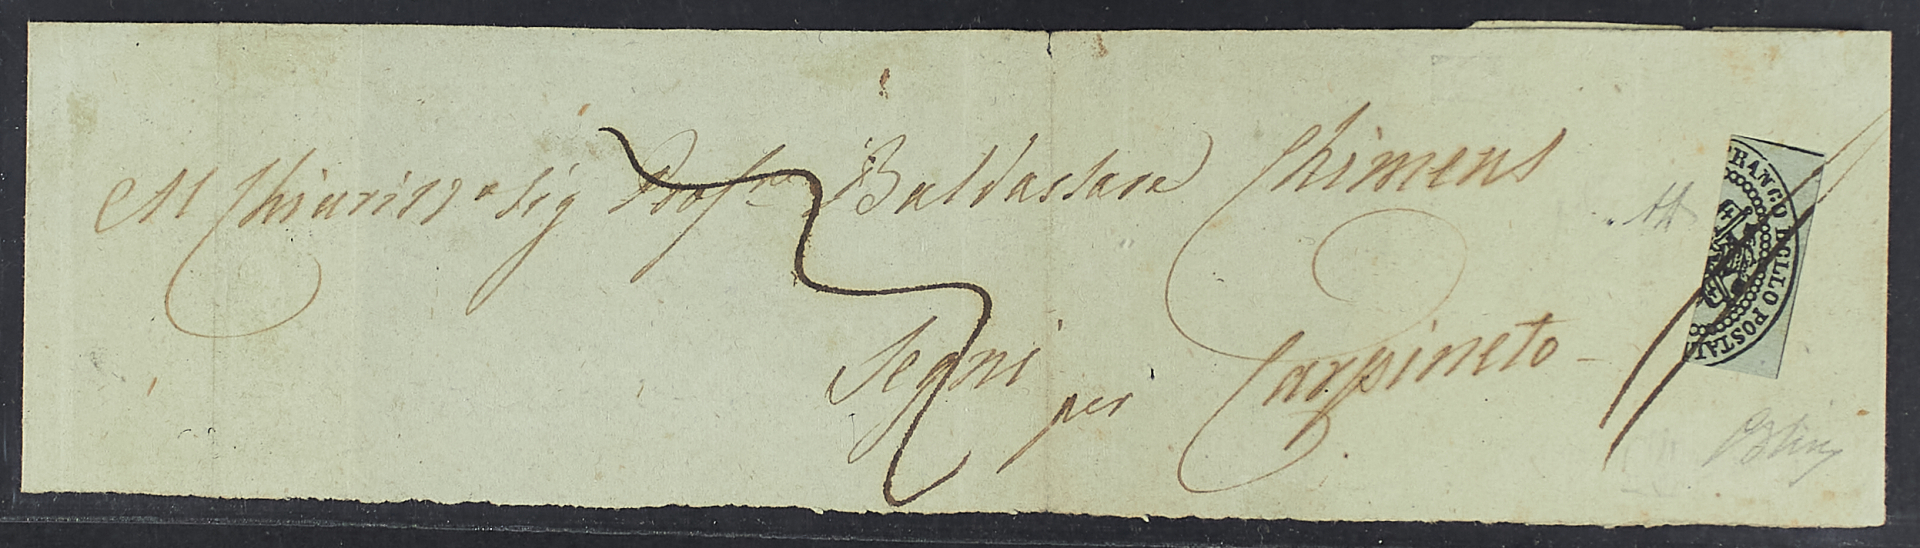 Al Chiariss.o Sig Prof.re Baldassare Chimens
Segni per Carpineto
FRANCO BOLLO POSTAL